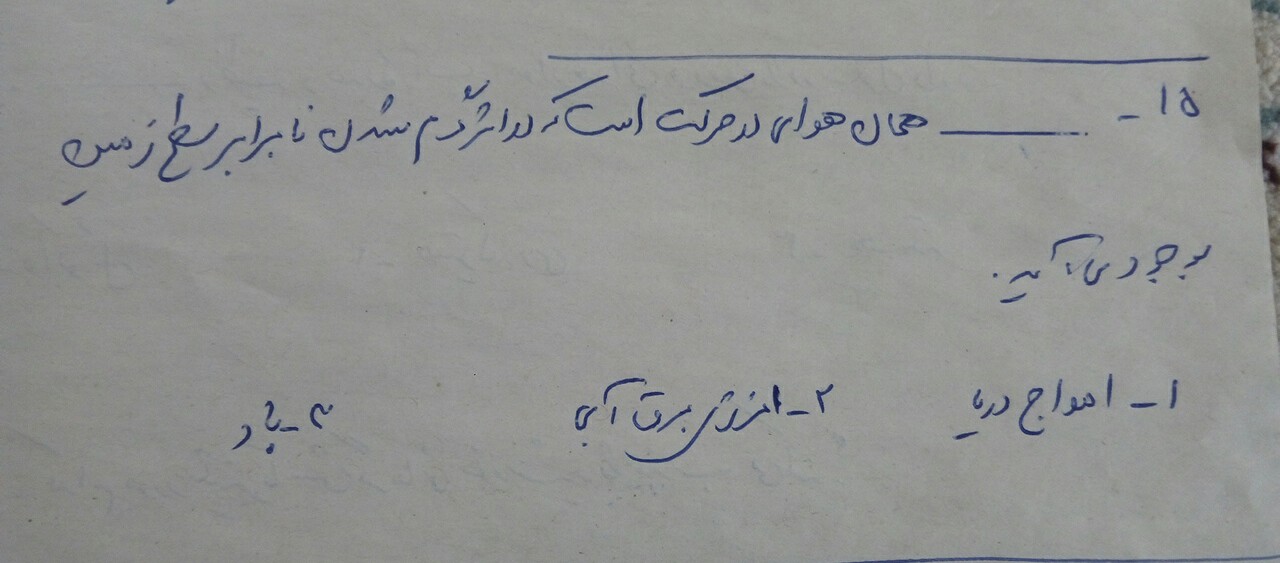 ۱۵- ـــــــــ همان هوای در حرکت است که در اثر گرم شدن نا برابر سطح زمین
بوجود می آید.
۱- امواج دریا ۲- انرژی برق آبی ۳- باد